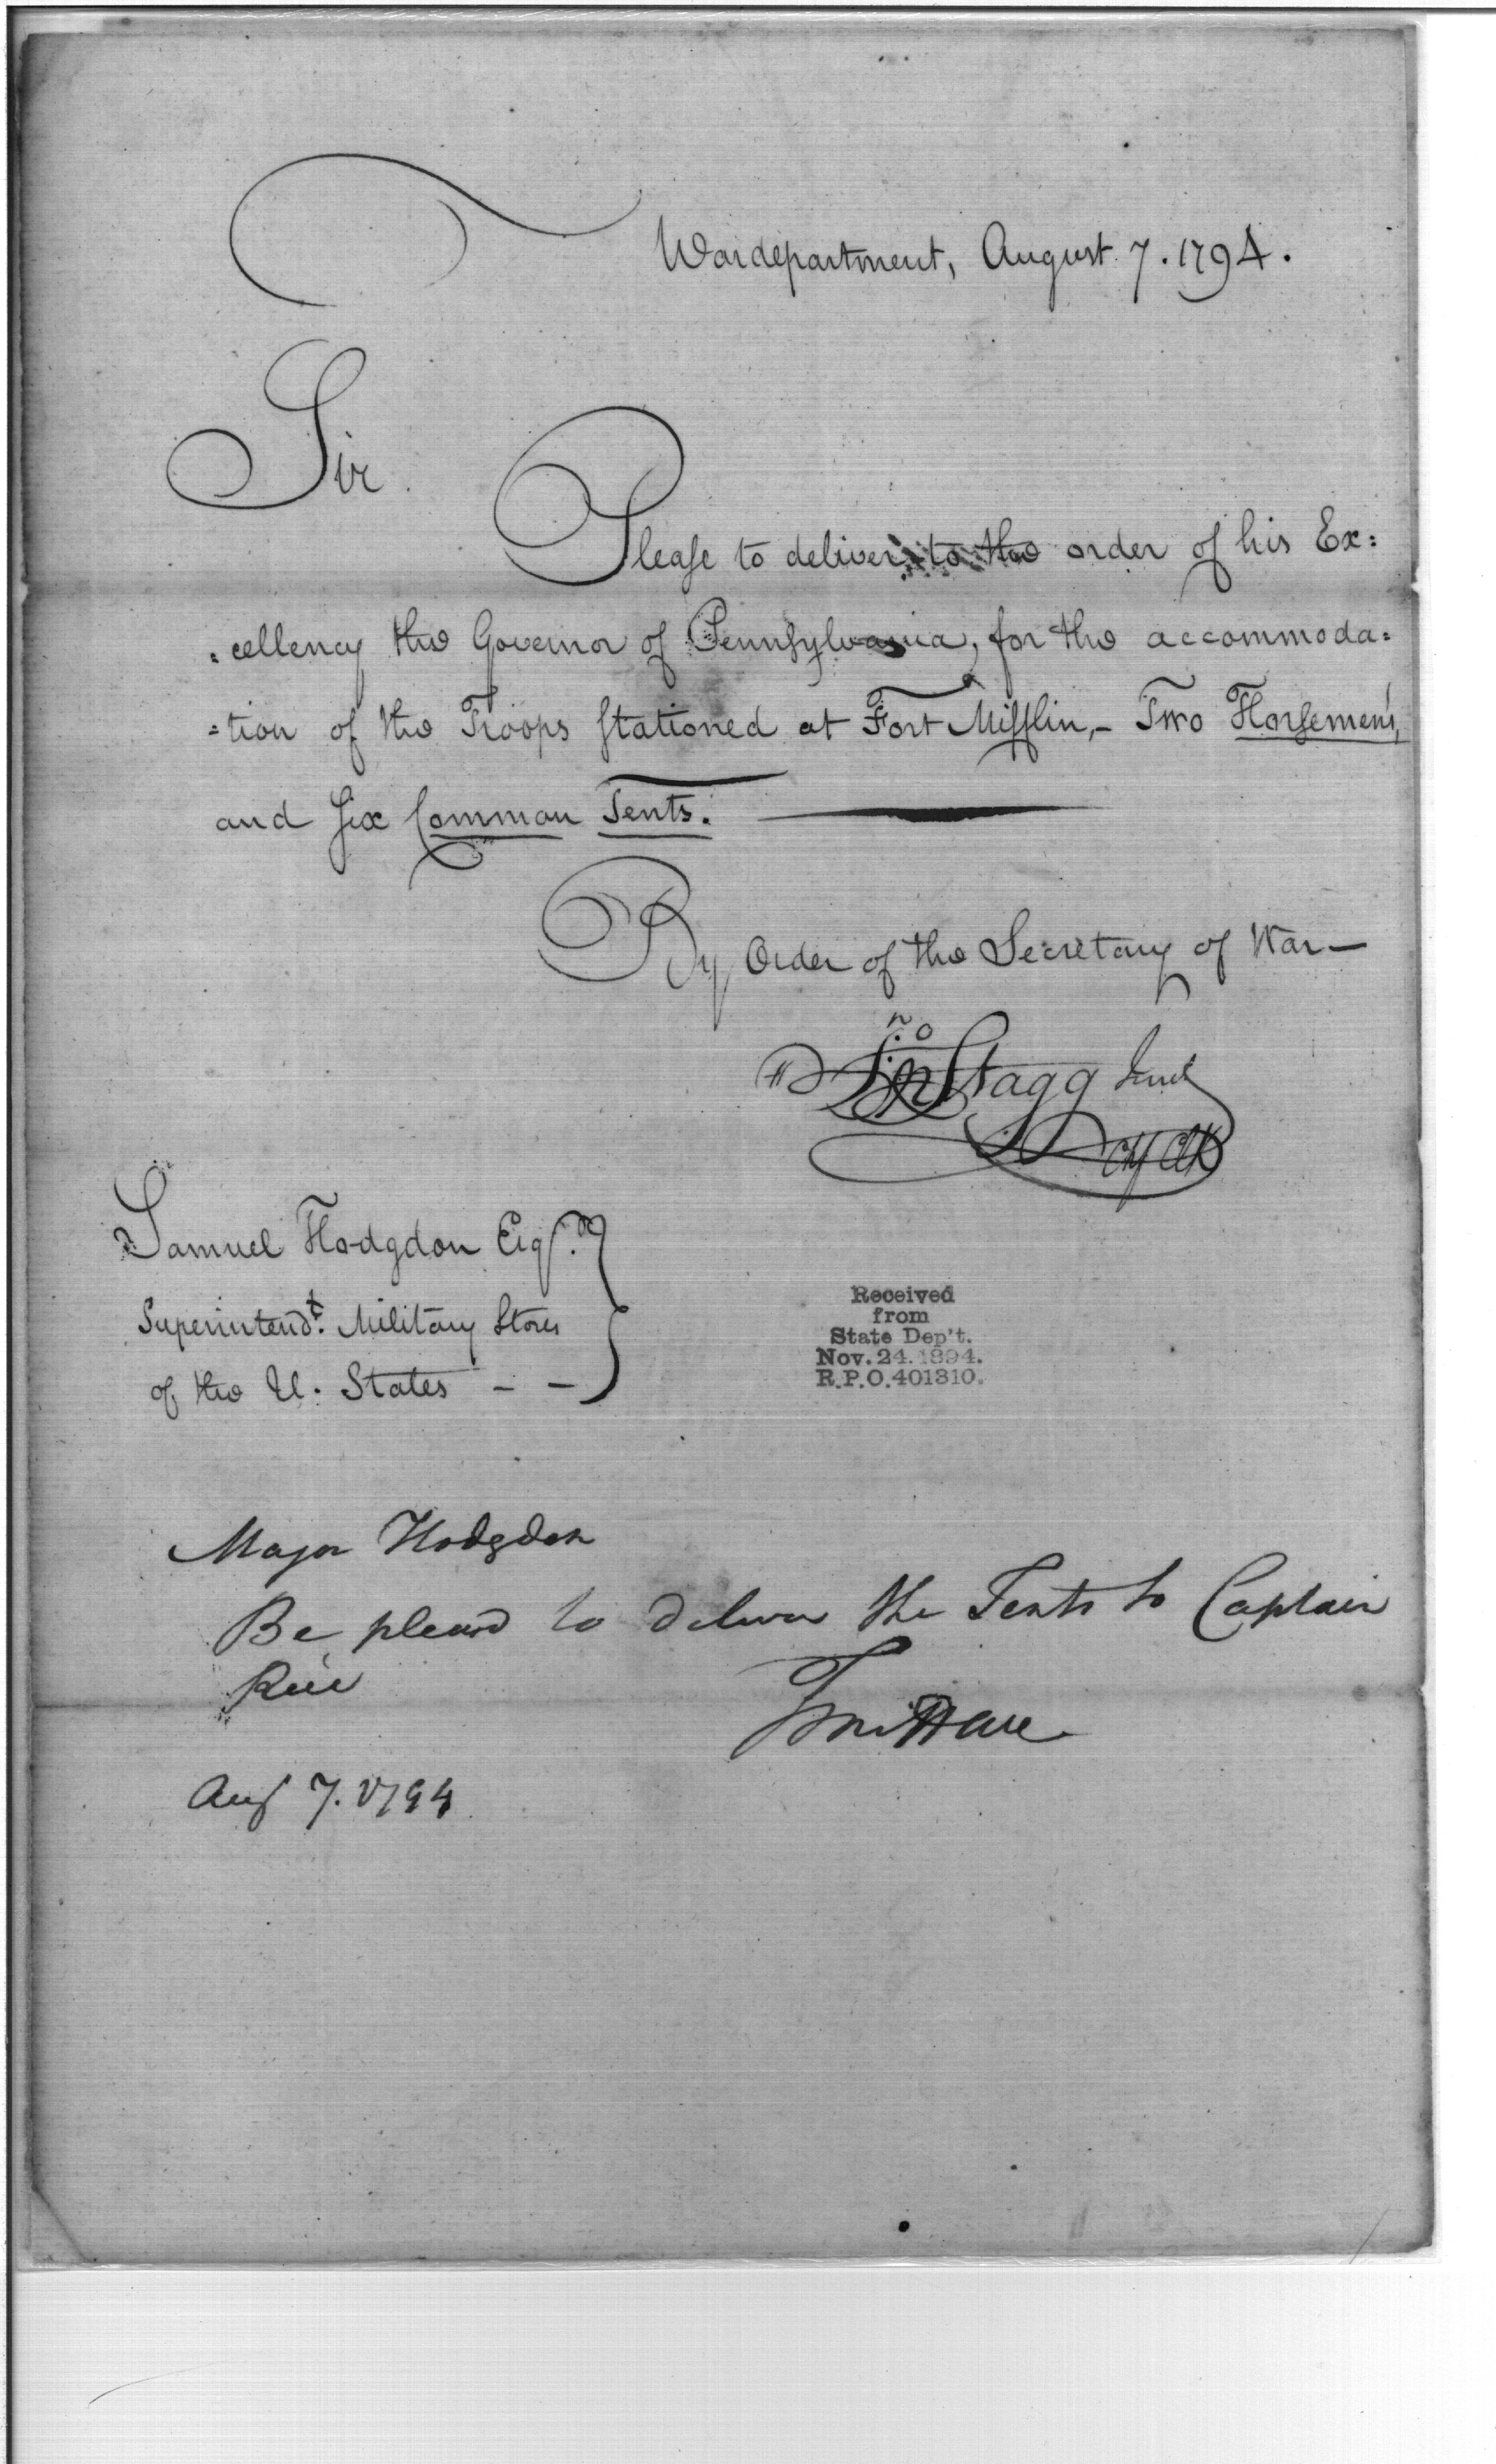 Wardepartment, August 7. 1794.
Sir.
Please to deliver to the order of his Ex:
:cellency the Governor of Pennsylvania, for the accommoda:
:tion of the Troops stationed at Fort Mifflin,- Two Horsemen's,
and Six Common Tents.
By Order of the Secretary of War-
Jno Stagg Junr
Ch Clk
Samuel Hodgdon Esqr.
Superintendt. Military Stores
of the U. States - -
Received
from
State Dep't.
Nov. 24. 1894.
R.P.O. 401310.
Major Hodgdon
Be pleased to deliver the Tents to Captain
Rice
Aug 7. 1794